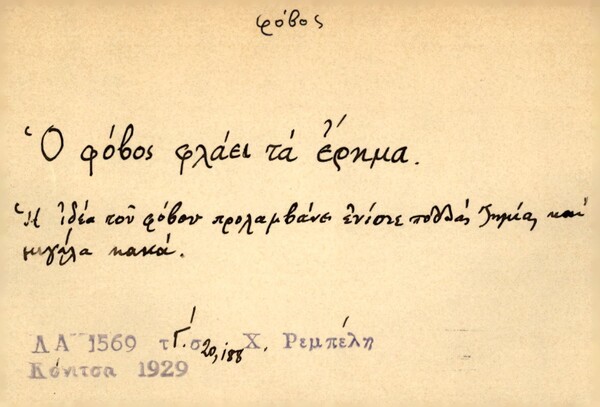 φόβος
Ὁ φόβος φλάει τά ἔρημα.
Ἡ ἰδέα τοῦ φόβου προλαμβάνει ἐνίοτε πολλάς ζημίας καί
μεγάλα κακά.
ΛΑ 1569 τ Γ΄. σ 20, 188 Χ. Ρεμπέλη
Κόνιτσα 1929